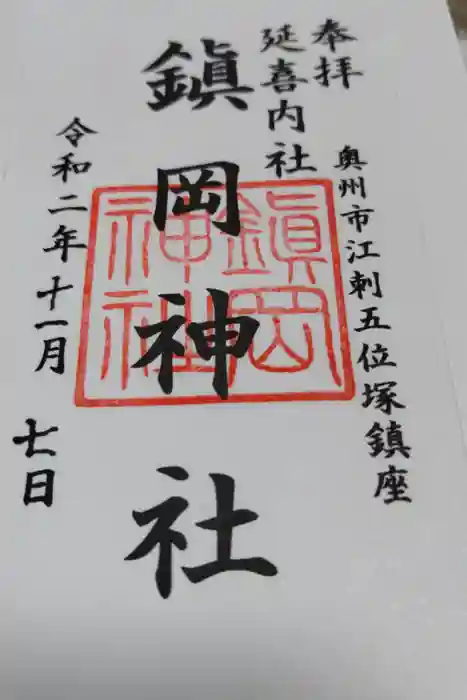 奉拝
延喜内社
奥州市江刺五位塚鎮座
鎭岡神社
鎭岡神社
令和二年十一月
七日